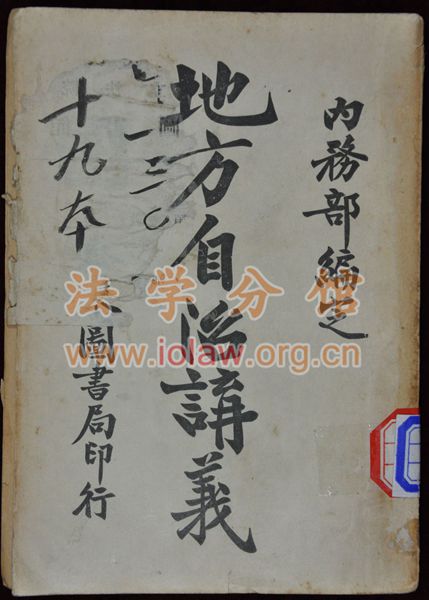 内務部編定
地方自治講義
一三〇
十九本
圖書局印行
法学分馆
www.iolaw.org.cn